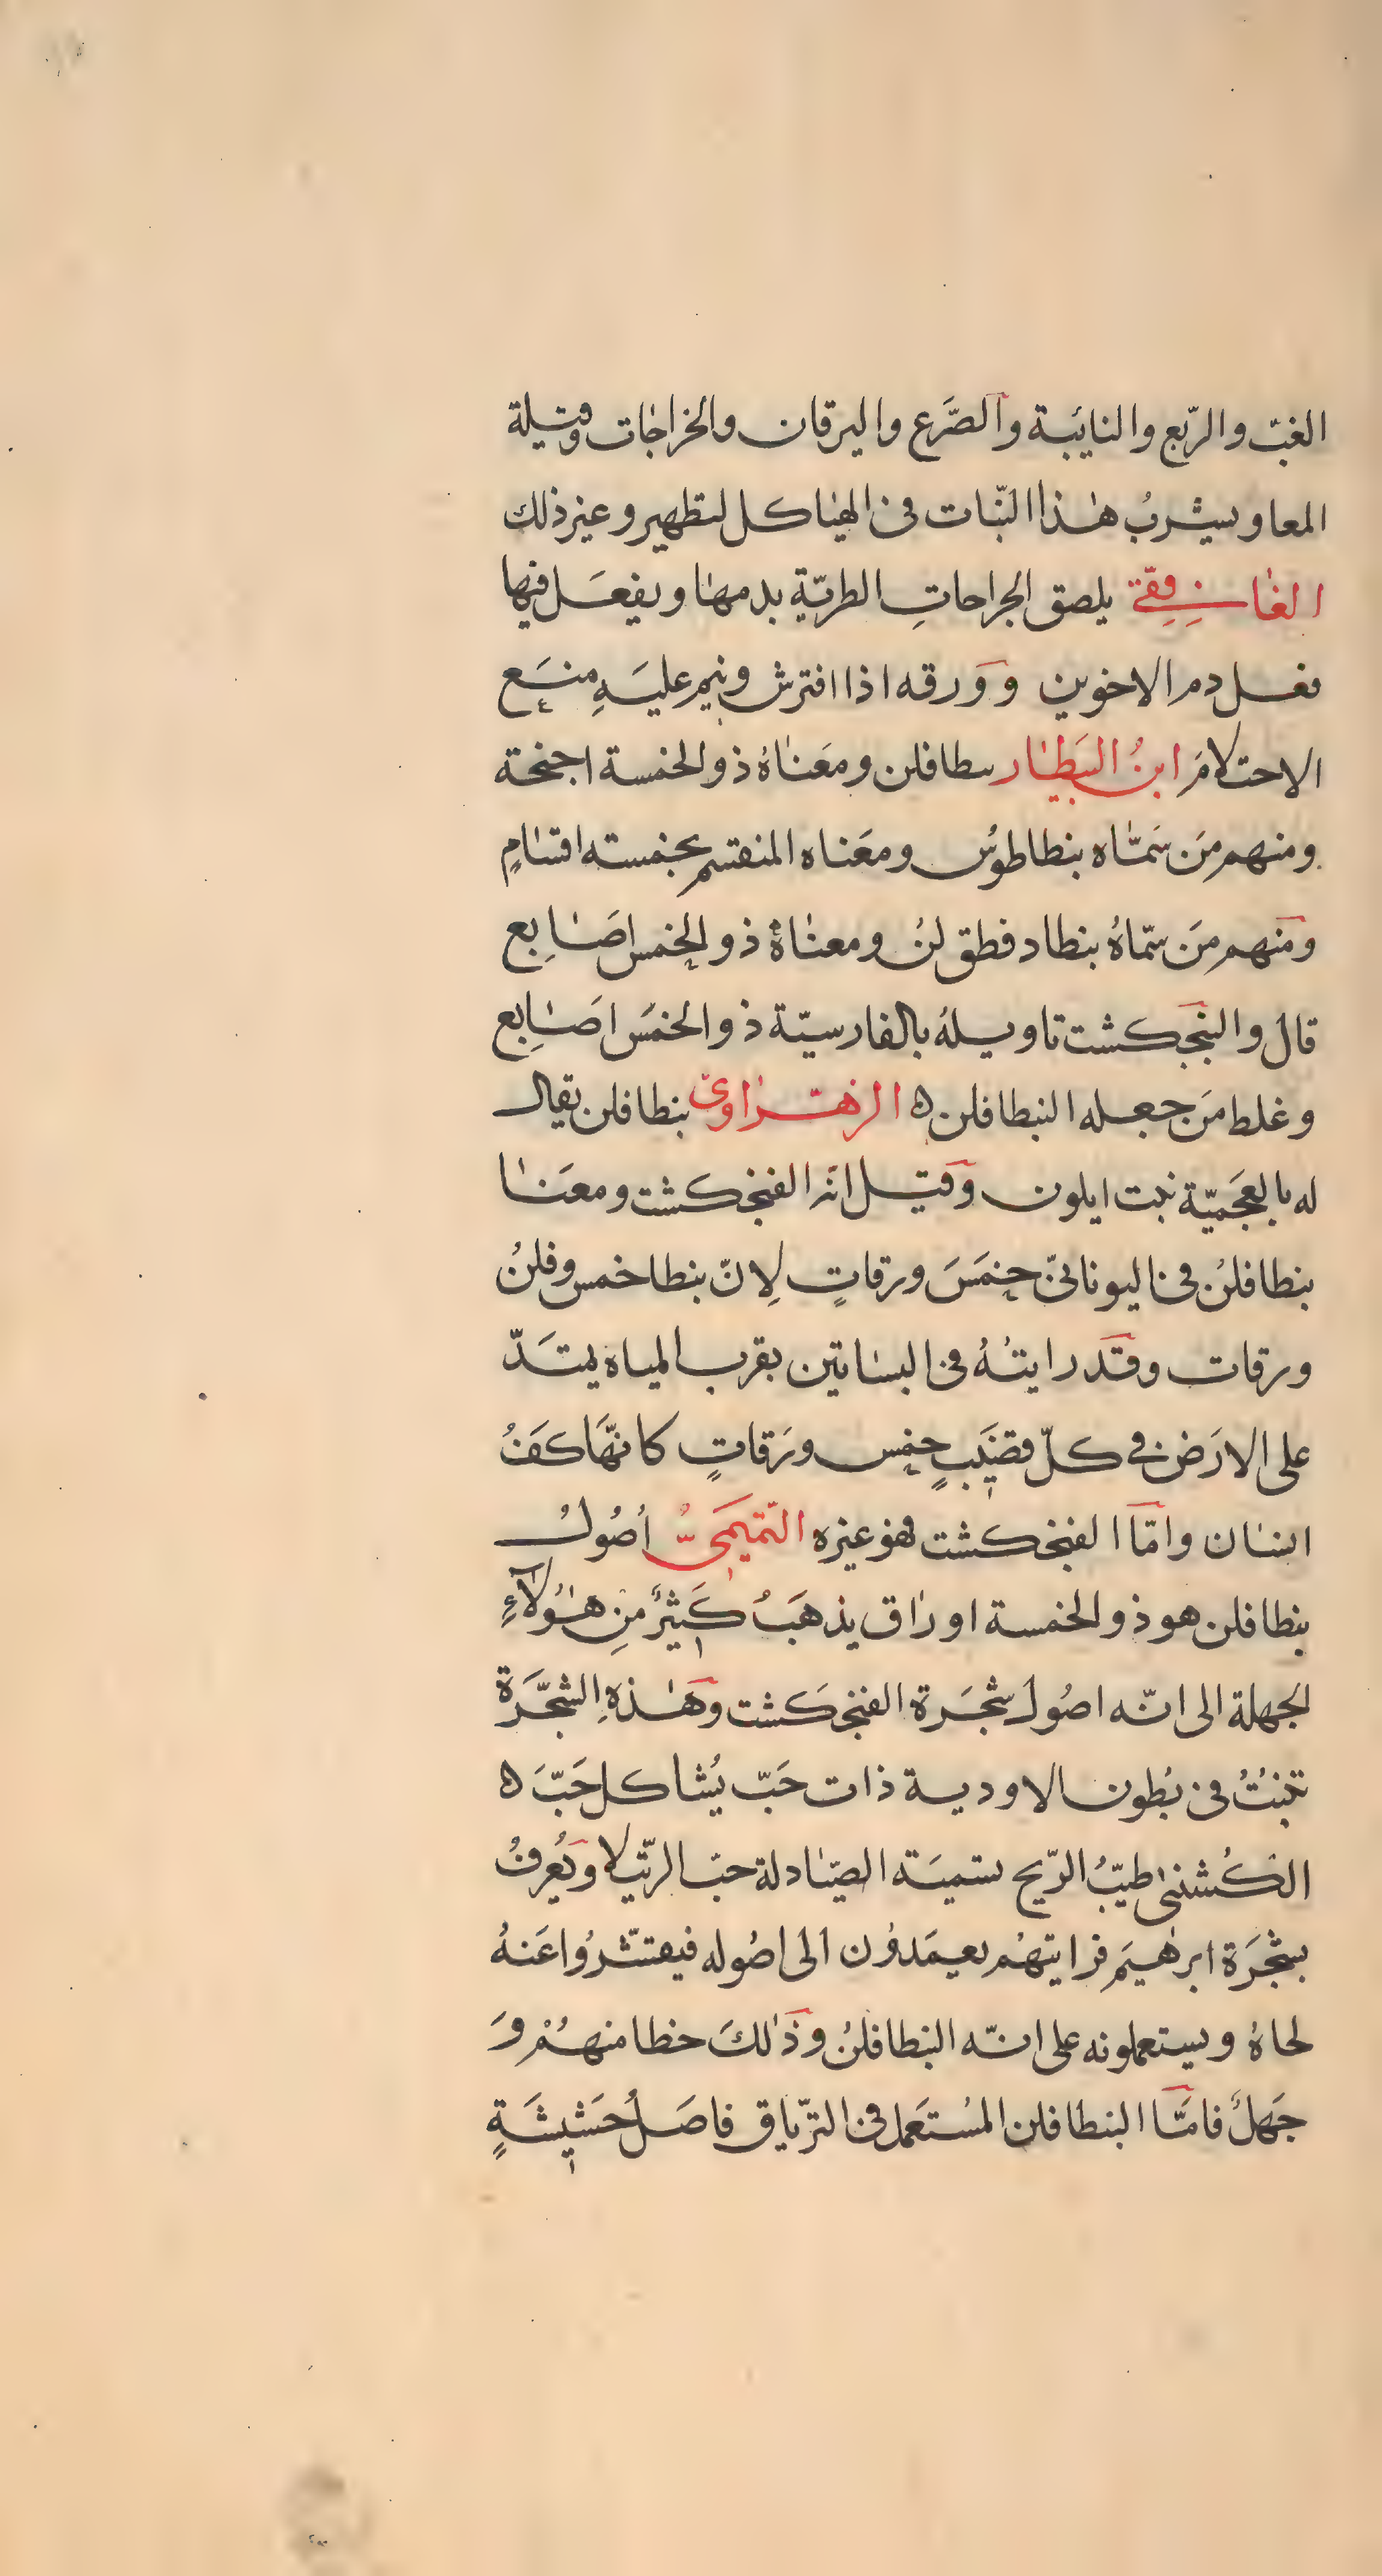 الغبّ والرّبع والنايبة والصَّرَع واليرقان والخراجات وقيلة
المعا ويشربُ هٰذا النّبات فى الهياكل لتطهير وغير ذلك
الغافِقِىّ يلصق الجراحاتِ الطريّةِ بدمها ويفعَل فيها
فعل دم الاخوين وَوَرقه اذا افترش ونيم عليَهِ منَع
الاحتلامَ ابنُ البَيطار سطافلن ومعَناهُ ذو الخمسة اجنحة
ومنهم مَن سَمّاه بنطاطوُس ومعَناه المنقسم بخمسته اقسامٍ
ومَنهم مَن سمّاهُ بنطادفطق لنُ ومعناهُ ذو الخمس اصَابِع
قال والبنَجكشت تاويلهُ بالفارسيّة ذو الخمسَ اصَابِع
وغلط مَن جعله النبطافلن ه الزهراوىّ بنطافلن يقال
له بالعجَميّة نبت ايلون وَقيل انّه الفنجنكشت ومعَنا
بنطافلنُ فى اليونانىّ خمَسَ ورقاتٍ لِانّ بنطا خمس وفلنُ
ورقات وقَد رايتهُ فى البساتين بقرب المياه يمتَدّ
على الارَض فى كلّ قضيَبٍ خمس ورَقاتٍ كانهّاَ كفَُ
انسان وامّا الفنجنكشت فهو غيره التّميمَىُّ أصُولُ
بنطافلن هو ذو الخمسة اوراق يذهَبُ كَثيرٌ مِن هٰؤلآءِ
الجهلة الى انّه اصُول شجَرة الفنجنكَشت وهَٰذهِ الشجَّرَة
تنبُتُ فى بُطون الاودية ذات حَبّ يُشاكل حَبَّ ه
الكُشنىٰ طيّبُ الرّيح تسميَته الصيّادلة حبّ الرّتيلا وَيُعرفُ
بشجَرَة ابرٰهيَم فرايتهُم يعمَدوُن الى اصُوله فيقتشّرُوا عَنهُ
لحاهُ ويستعملونه على انّه البنطافلنُ وذَٰلكَ خطا منهُمْ وَ
جَهلٌ فامّا البنطافلن المسُتعَمل فى الترّياق فاصَلُ حَشيشَةٍ